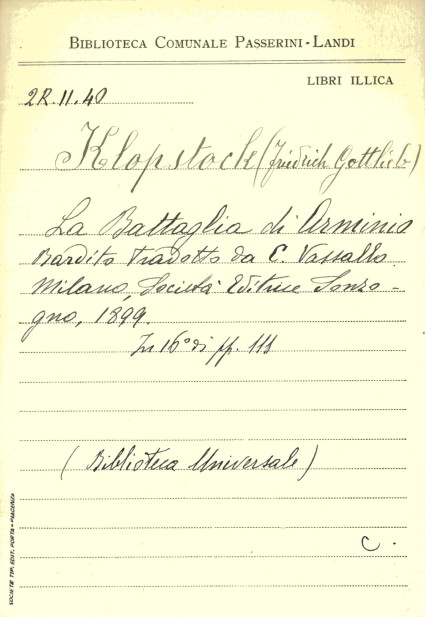 BIBLIOTECA COMUNALE PASSERINI-LANDI
LIBRI ILLICA
22.11.40
Klopstock (Friedrich Gottlieb)
La Battaglia di Arminio
Bardito tradotto da C. Vassallo.
Milano, Società Editrice Sonzo-
gno, 1899.
In 16° di pp. 111
(Biblioteca Universale)
C.
SOCIETÀ TIP. EDIT. PORTA - PIACENZA